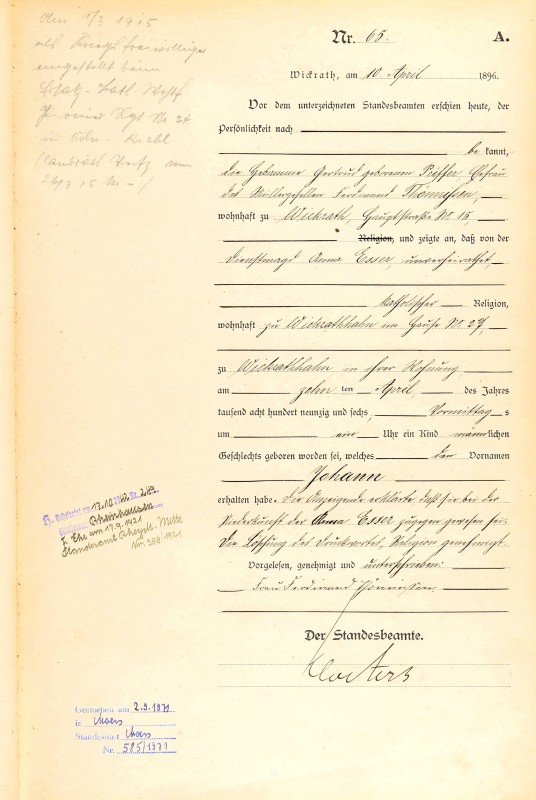 Am 1/3 1915
als Kriegsfreiwilliger
eingestellt beim
Ersatz-Batl.
in Cöln-Riehl
Nr. 65.
A.
Wickrath, am 10. April 1896.
Vor dem unterzeichneten Standesbeamten erschien heute, der
Persönlichkeit nach
bekannt,
die Hebamme Gertrud geborenen Peiffer, Ehefrau
des Ferdinand Thönnessen,
wohnhaft zu Wickrath, Hauptstraße N. 15,
Religion, und zeigte an, daß von der
Dienstmagd Anna Esser, unverheirathet
katholischer Religion,
wohnhaft zu Wickrathhahn im Hause N. 27,
zu Wickrathhahn in ihrer Wohnung
am zehn ten April des Jahres
tausend acht hundert neunzig und sechs, Vormittags
um ein Uhr ein Kind männlichen
Geschlechts geboren worden sei, welches den Vornamen
Johann
erhalten habe. Die Anzeigende erklärte, daß sie bei der
Niederkunft der Anna Esser zugegen gewesen sei.
Die Löschung des Druckwortes, Religion genehmigt.
Vorgelesen, genehmigt und unterschrieben:
Frau Ferdinand Thönnissen
Der Standesbeamte.
13.10.
Rheinhausen
I. Ehe am 17.9.1921
Standesamt
Nr. 398/1921
Gestorben am 2.9.1971
in Moers
Standesamt Moers
Nr. 585/1971